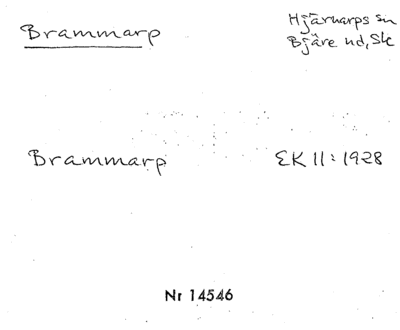 Brammarp
Hjärnarps sn
Bjäre hd, Sk
Brammarp
EK II:1928
Nr 14546